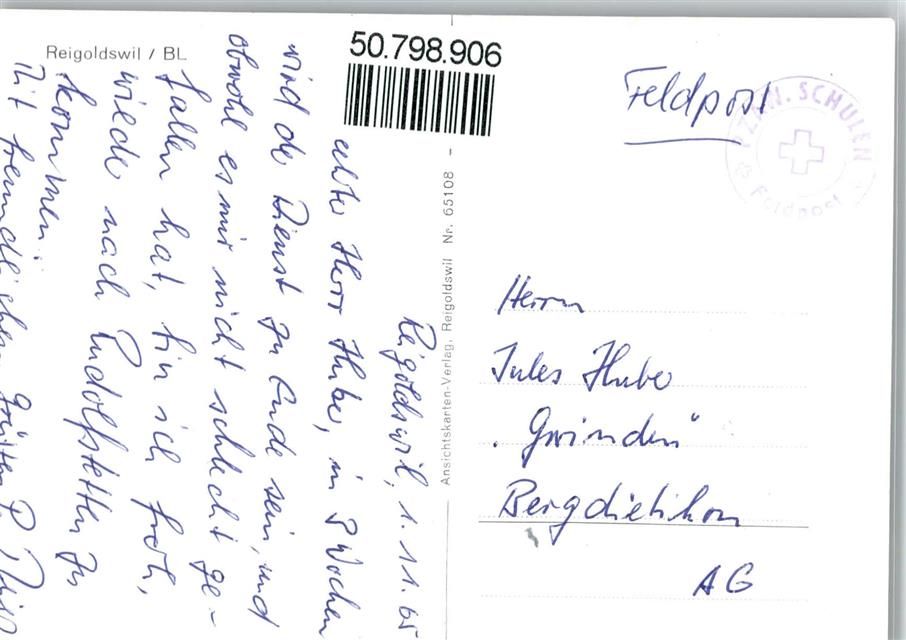 Reigoldswil / BL
50.798.906
Reigoldswil, 1.11.65
Herr Huber, in 3 Wochen
wird der Dienst zu Ende sein, und
obwohl es mir nicht schlecht ge-
fallen hat, bin ich froh,
wieder nach Rudolfstetten zu
kommen.
Mit freundlichen Grüssen
Ansichtskarten-Verlag, Reigoldswil Nr. 65108
Feldpost
SCHULEN
Feldpost
Herrn
Jules Huber
"Gwinden"
Bergdietikon
AG